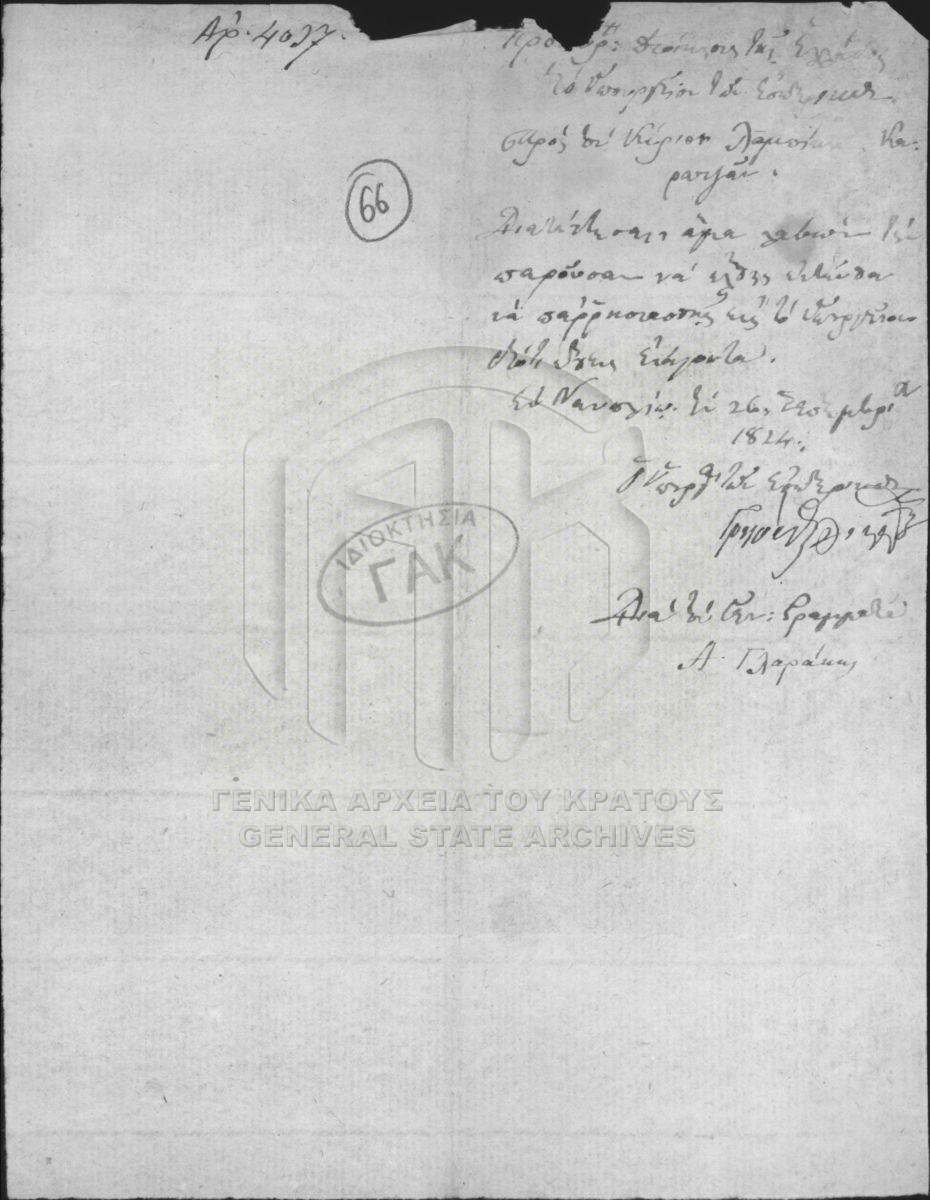 Αρ. 4037.
Προσωρ: Διοίκησις τῆς Ἑλλάδος
Τὸ Ὑπουργεῖον τῶν Ἐσωτερικῶν
Πρὸς τὸν Κύριον
66
Διατάττεσαι, ἅμα λαβὼν τὴν
παροῦσαν νὰ ἔλθῃς ἐνταῦθα
νὰ παῤῥησιασθῇς εἰς τὸ Ὑπουργεῖον
διότι
Ἐν Ναυπλίῳ τῇ 26, Σεπτεμβρίου
1824.
Ὁ Ὑπουργὸς τῶν Ἐσωτερικῶν
ΙΔΙΟΚΤΗΣΙΑ
ΓΑΚ
Διὰ τὸν Γεν: Γραμματέα
Α. Γλαράκης
ΓΕΝΙΚΑ ΑΡΧΕΙΑ ΤΟΥ ΚΡΑΤΟΥΣ
GENERAL STATE ARCHIVES